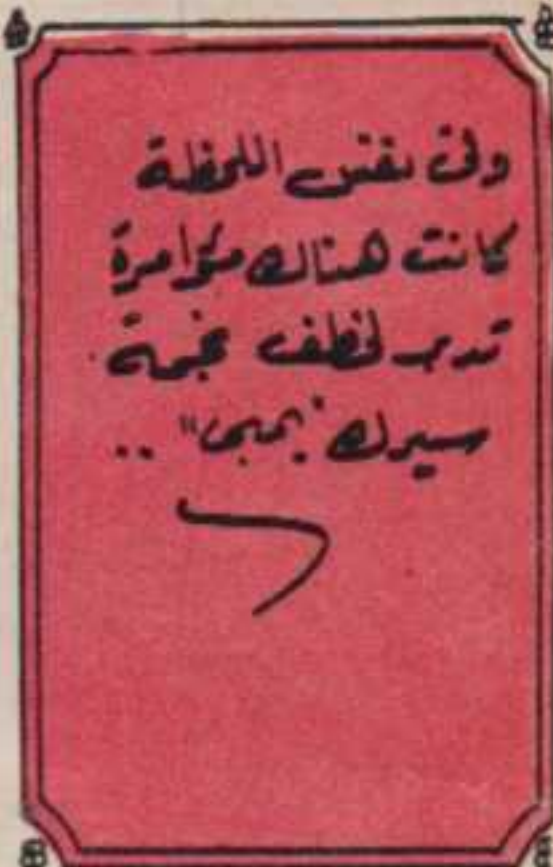 وفى نفس اللحظة
كانت هناك مؤامرة
تدبر لخطف نجمة
سيرك "بمبى" ..